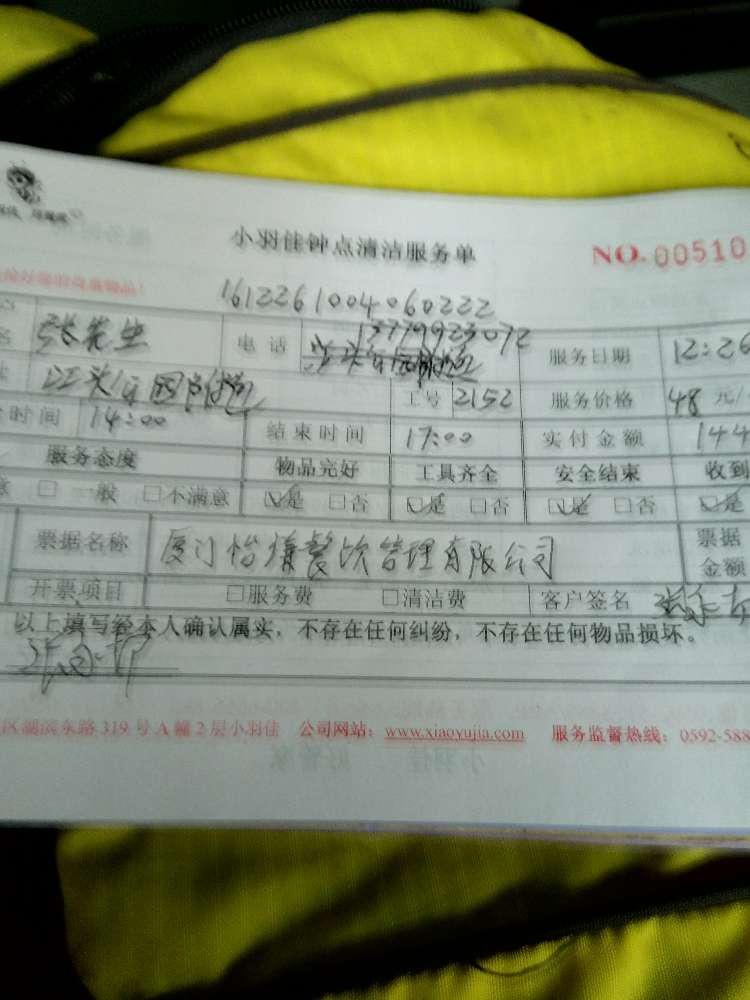 小羽佳钟点清洁服务单 NO. 00510
1612261004060222
张先生 电话 13779923072 服务日期 12:26
江头 工号 2152 服务价格 48 元/
时间 14:00 结束时间 17:00 实付金额 144
服务态度 物品完好 工具齐全 安全结束 收到
意 □一般 □不满意 ☑是 □否 ☑是 □否 ☑是 □否 ☑是
票据名称 厦门怡 餐饮管理有限公司 票据金额
开票项目 □服务费 □清洁费 客户签名
以上填写经本人确认属实，不存在任何纠纷，不存在任何物品损坏。
区湖滨东路 319 号 A 幢 2 层小羽佳 公司网站：www.xiaoyujia.com 服务监督热线：0592-588